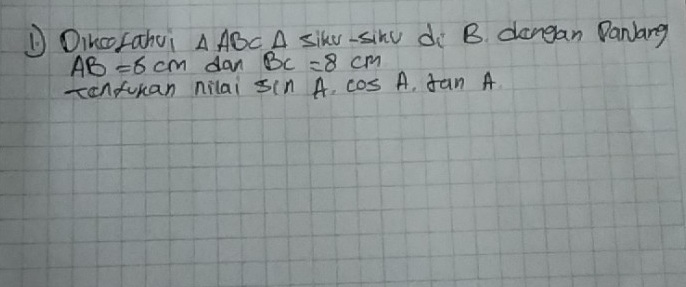 1) Diketahui Δ ABC Δ siku-siku di B. dengan Panjang
AB = 6 cm dan BC = 8 cm
tentukan nilai sin A. cos A. tan A.